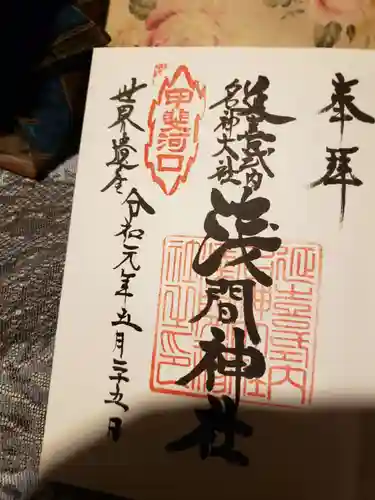 奉拝
延喜式内
名神大社
浅間神社
甲斐
河口
世界遺産
令和元年五月二十五日